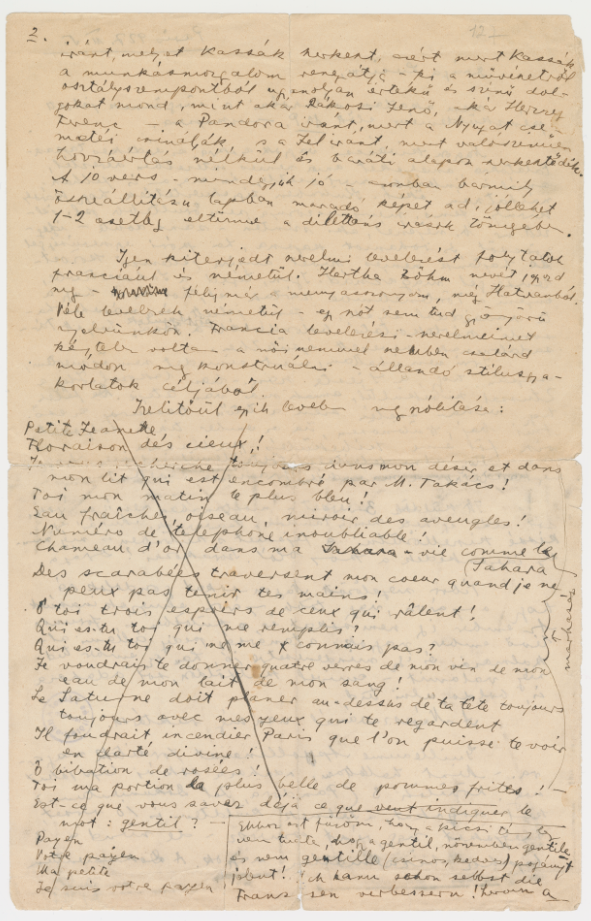 2.
iránt, melyet Kassák herkent, azért mert Kassák
a munkásmozgalom renegátja – ki a művészetről
osztályszempontból ugyanolyan értékű és színű dol-
gokat mond, mint akár Rákosi Jenő, akár Herczeg
Ferenc – a Pandora iránt, mert a Nyugat
csinálják s a iránt, mert valószínűen
hozzáértés nélkül és baráti alapon
A 10 vers – mindegyik jó – azonban bármily
összeállítású lapban maradó képet ad, jóllehet
1-2 esetleg eltűnne a dilettáns írások tömegében.
Igen kiterjedt szerelmi levelezést folytatok
franciául és németül. Hertha Böhm nevét
meg – félig már a menyasszonyom, még Hatvanból.
Véle levelezek németül – ez nőt nem tud gyönyörű
nyelvünkön. Francia levelezési szerelmeimet
kénytelen voltam a női nemmel szemben családi
módon megkonstruálni – állandó stílusgya-
korlatok céljából.
Ízelítőül egyik levelem megszólítása:
Petite Jeanette
Floraison des cieux!
Je recherche toujours dans mon désir et dans
mon lit qui est encombré par M. Takács!
Toi mon matin le plus bleu!
Eau fraîche, oiseau, miroir des aveugles!
Numéro de téléphone inoubliable!
Chameau d'or dans ma Sahara – vie comme la
Sahara
Des scarabées traversent mon coeur quand je ne
peux pas tenir tes mains!
Ô toi trois espoirs de ceux qui râlent!
Qui es-tu toi qui me remplis?
Qui es-tu toi qui ne me connais pas?
Je voudrais te donner quatre verres de mon vin de mon
eau de mon lait de mon sang!
Le Saturne doit planer au-dessus de ta tête toujours
toujours avec mes yeux qui te regardent
Il faudrait incendier Paris que l'on puisse te voir
en clarté divine!
Ô vibration de rosées!
Toi ma portion la plus belle de pommes frites! –
Est-ce que vous savez déjà ce que veut indiquer le
mot: gentil? –
Payen
Votre payen
Ma petite
Je suis votre payen!
Ebből azt, hogy a kicsi
nem tudta, hogy a gentil, nőnemben gentille
és nem gentille (csinos, kedves) pogányt
jelent! Ich kann schon selbst die
Franzosen verbessern!